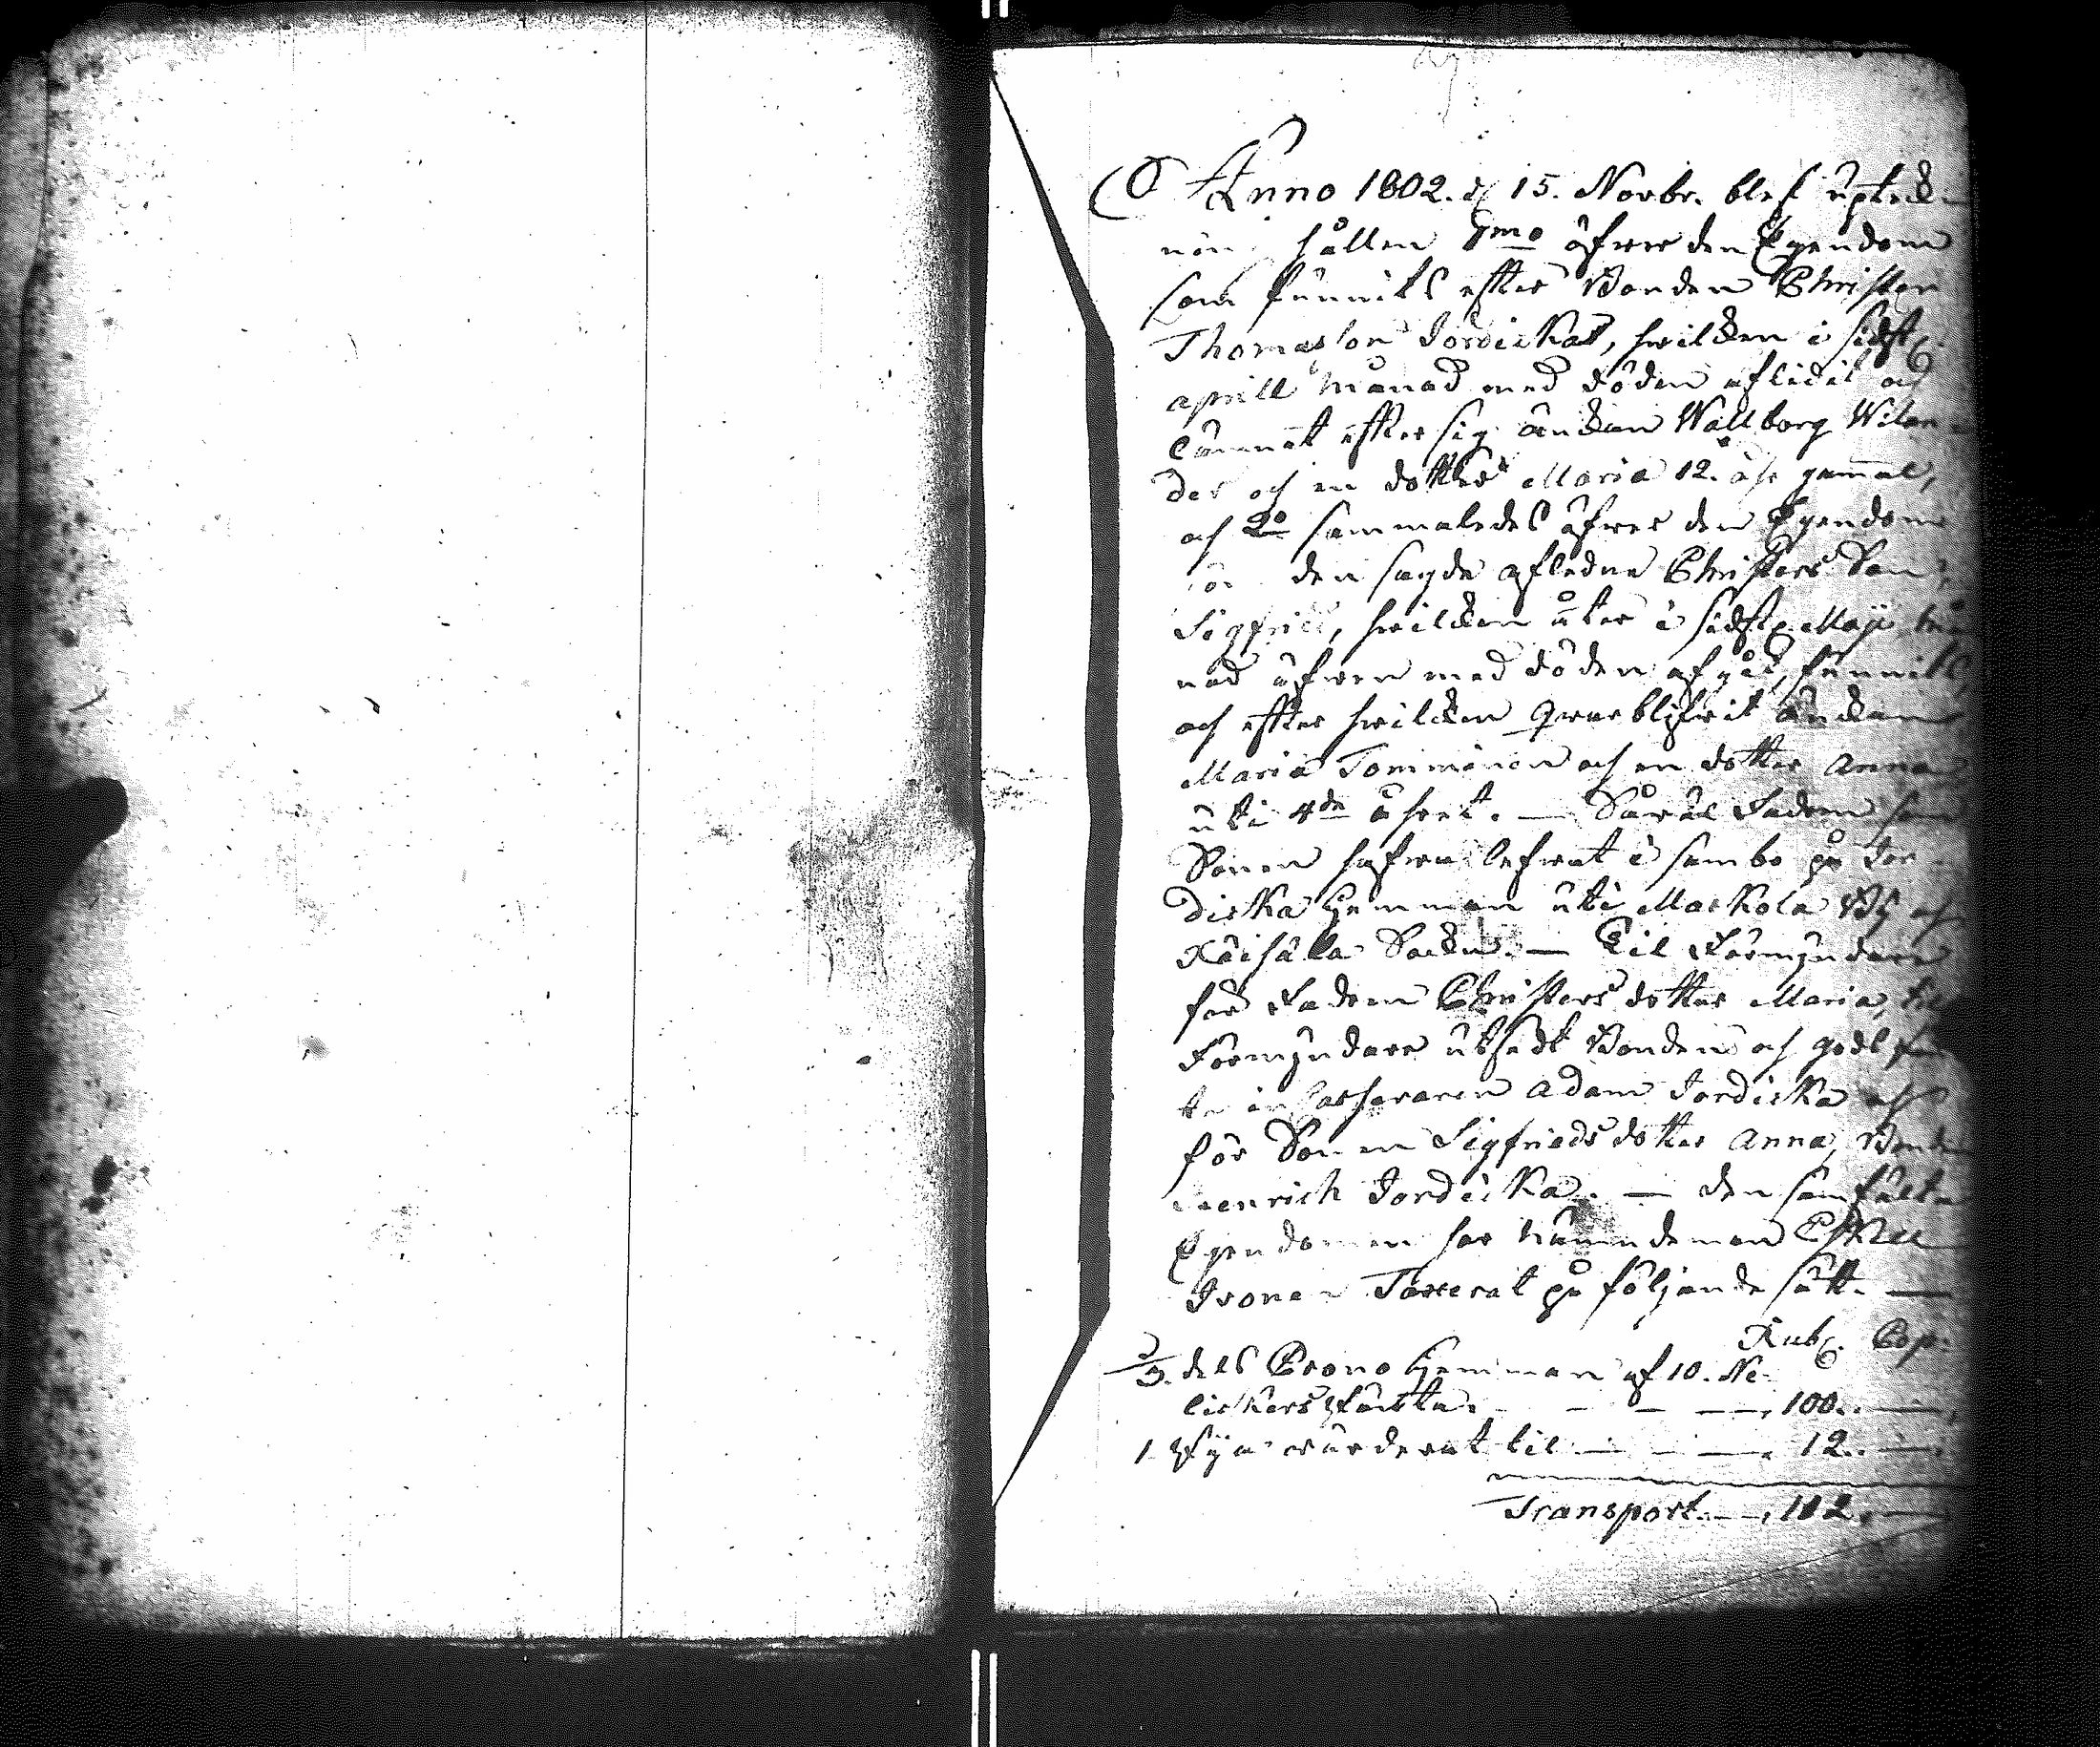 Anno 1802. d 15. Novbr. blef upteck-
nin hållen 1mo öfwer den Egendom
som funnits efter Bonden Christer
Thomasson Jordickas, hwilcken i sidste
aprill Månad med döden aflidit och
lämnat efter sig änckan Wallborg Wilan-
der och en dotter Maria 12. åhr gammal,
och 2o sammaledes öfwer den Egendom
den sagde aflednes Christers Son,
Sigfrid, hwilcken åter i sidste Maji Må-
nad äfwen med döden afgåt, funnits,
och efter hwilcken qwarblifwit änckan
Maria Tommänen och en dotter Anna
uti 4de åhret. — Såwäl Fadren som
Sonen hafwa lefwat i sambo på Jor-
dicka Hemman uti Markola By och
Räisälä Sockn. — Til Förmyndare
för Fadren Christers dotter Maria, til
Förmyndare utsedt Bonden och
Adam Jordicka och
för Sonen Sigfrieds dotter Anna, Bonden
Henrich Jordicka. — den samfälta
Egendomen har Nämndeman Eskell
Ivonen Taxerat på följande sätt. —
Rub. Cop.
dels Crono Hemman af 10. Ne-
lickors Skatta. — — — 100. —
1 Pyn wärderat til — — — 12. —
Transport. — 112. —